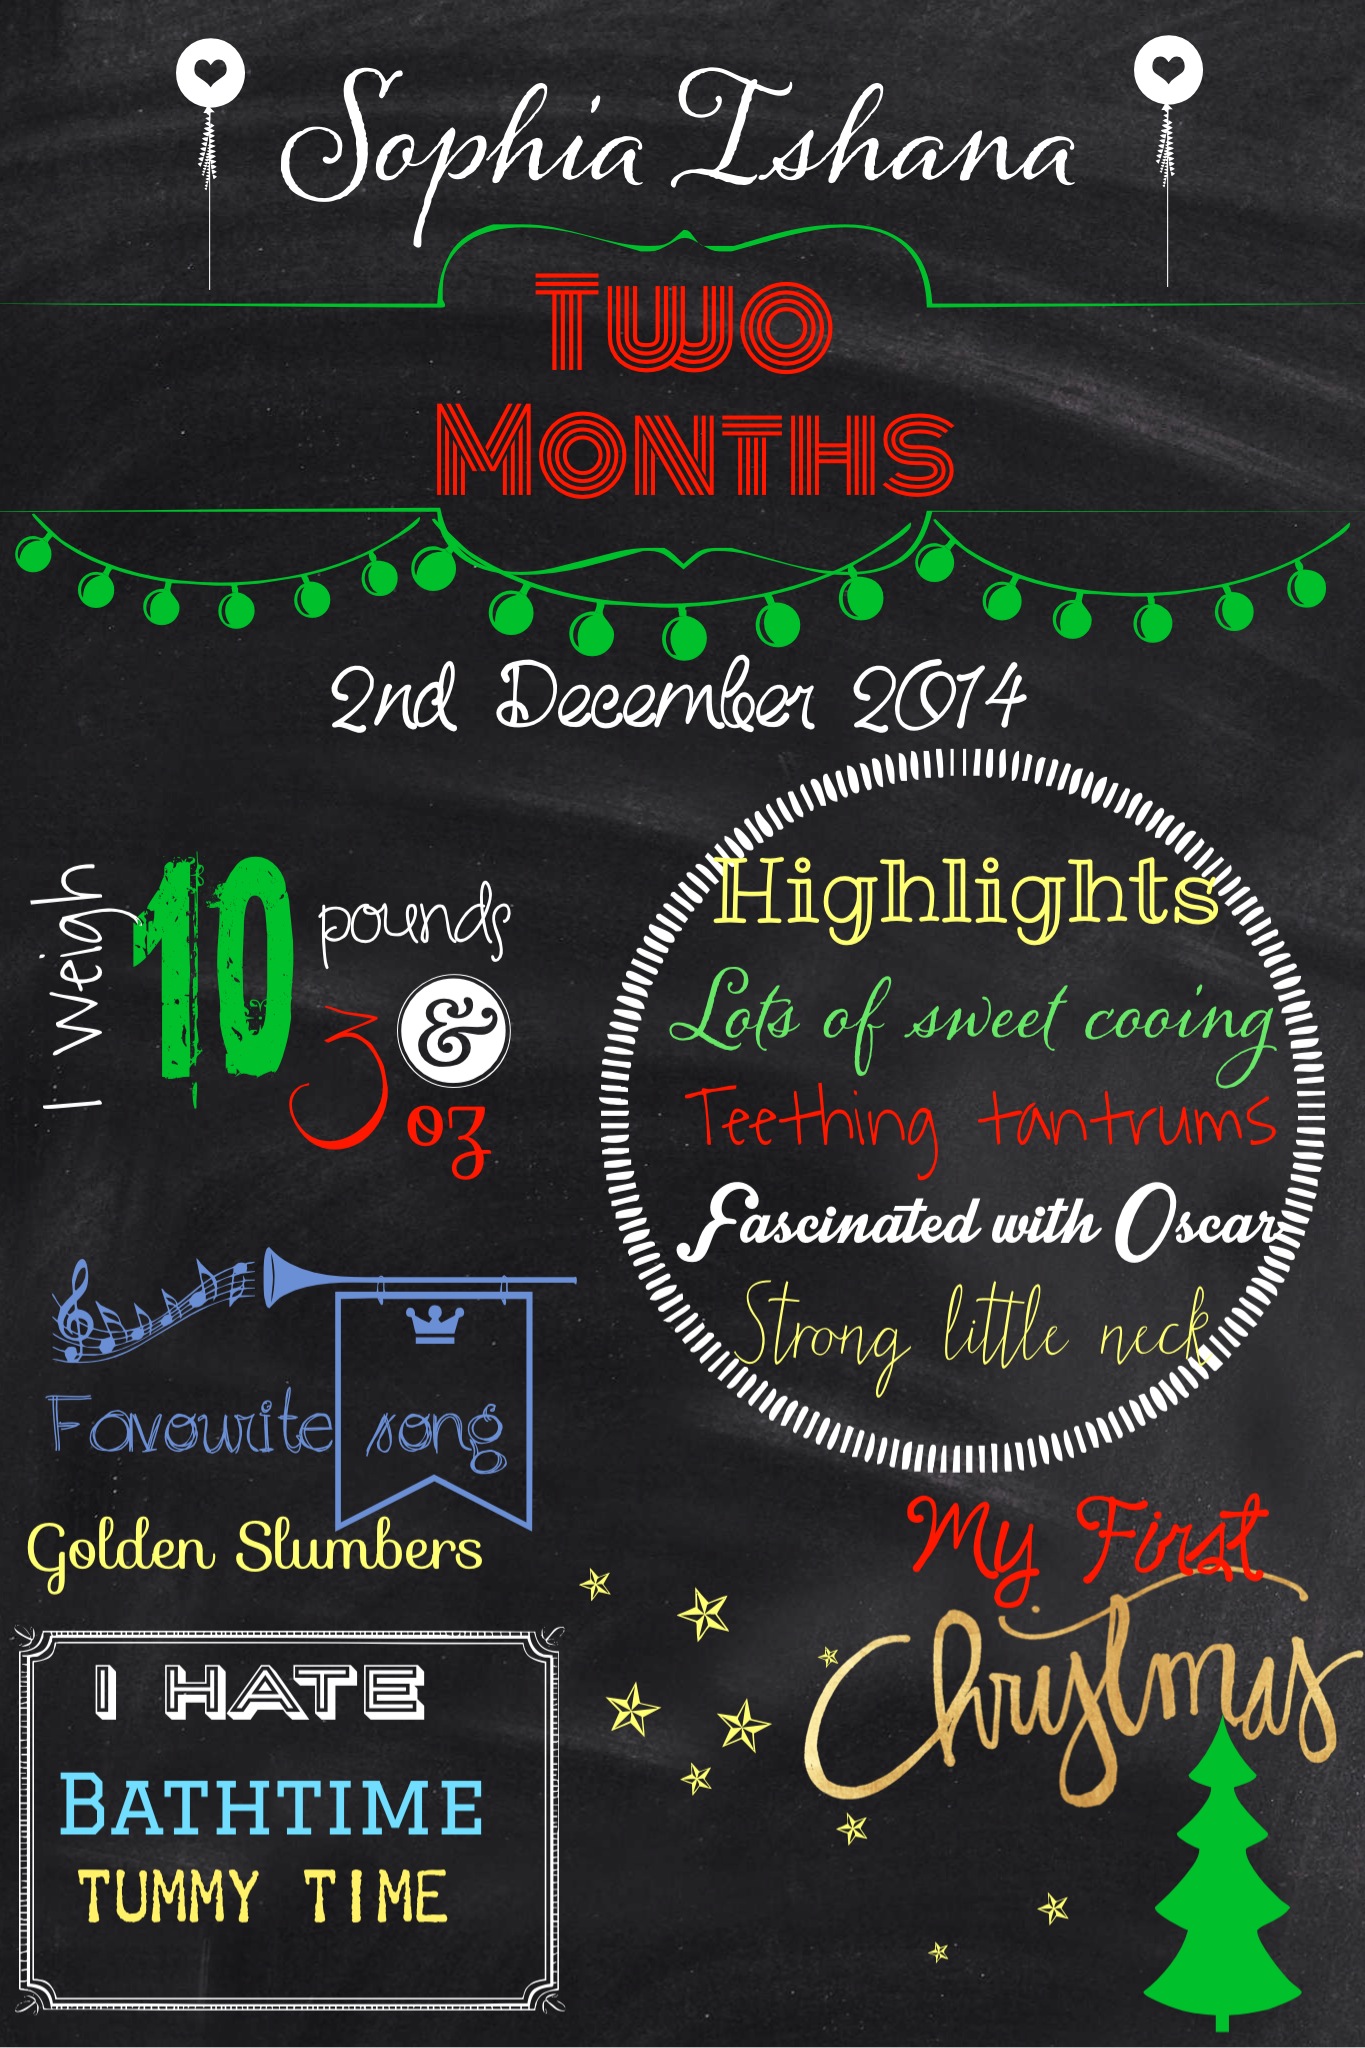 Sophia Ishana
Two
Months
2nd December 2014
I weigh
10
pounds
&
3
oz
Highlights
Lots of sweet cooing
Teething tantrums
Fascinated with Oscar
Strong little neck
Favourite song
Golden Slumbers
I HATE
BATHTIME
TUMMY TIME
My First
Christmas